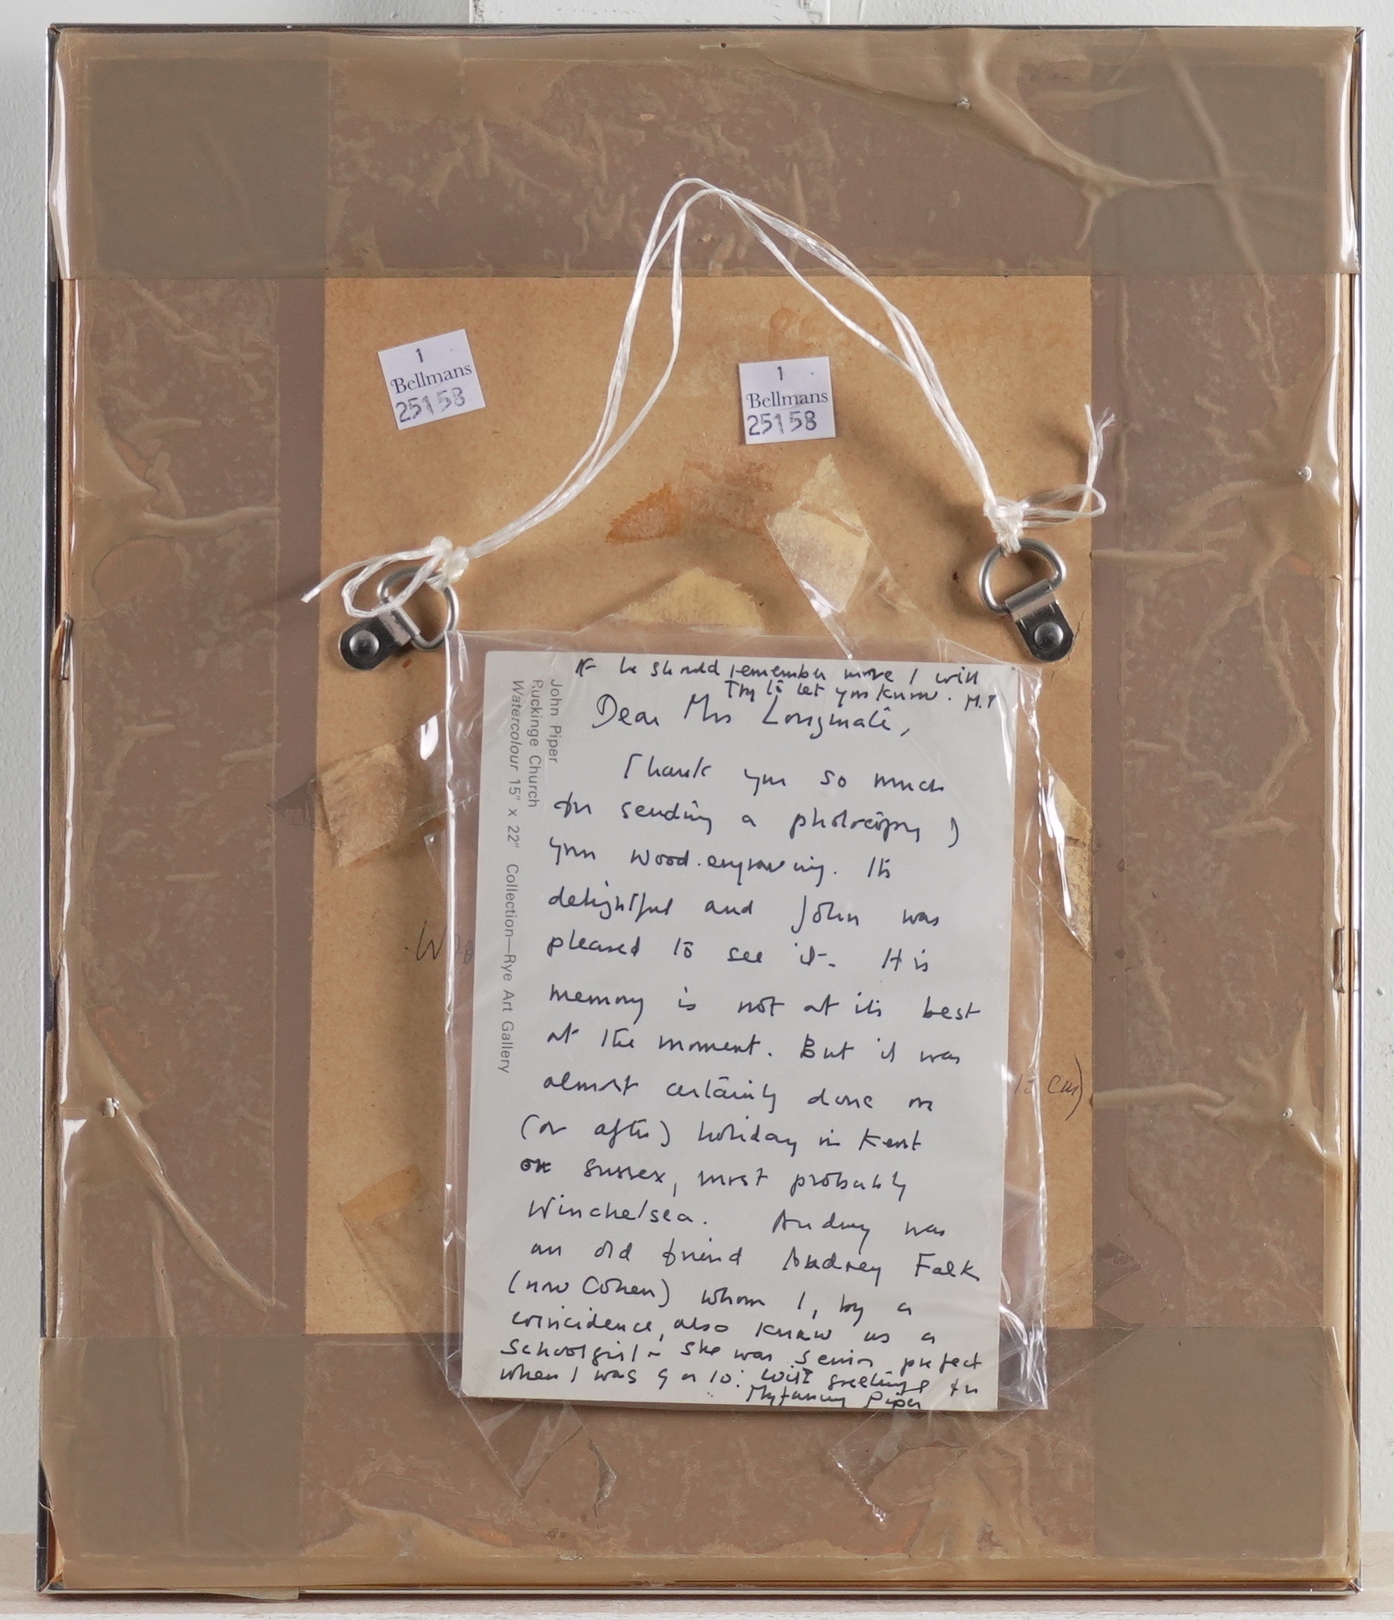 1
Bellmans
25158
1
Bellmans
25158
If he should remember more I will
Try to let you know. M.P
Dear Mrs Longmate,
Thank you so much
for sending a photocopy of
your wood.engraving. Its
delightful and John was
pleased to see it. His
memory is not at its best
at the moment. But it was
almost certainly done on
(or after) holiday in Kent
or Sussex, most probably
Winchelsea. Audrey was
an old friend Audrey Falk
(now Cohen) whom I, by a
coincidence, also knew as a
Schoolgirl - she was senior prefect
when I was 9 or 10. With greetings
Myfanwy Piper
John Piper
Ruckinge Church
Watercolour 15" x 22" Collection—Rye Art Gallery
cm)